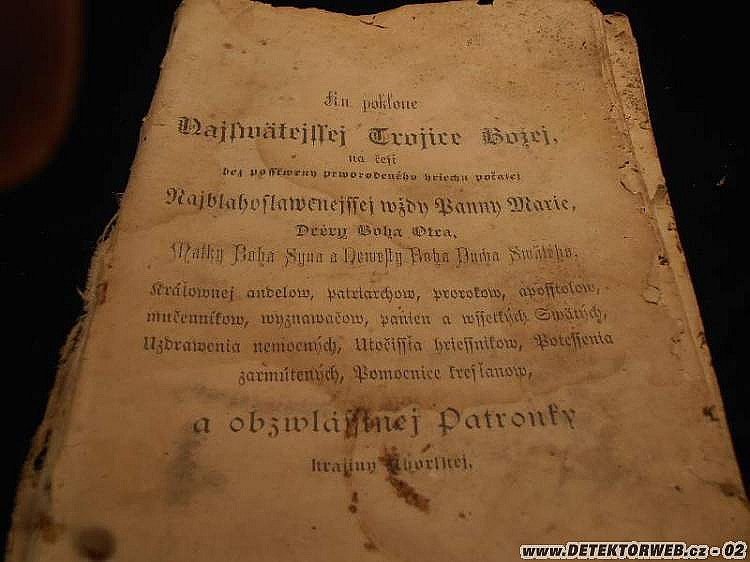 Ku poklone
Najswätejssej Trojice Bozej,
na česť
bez posskwrny prworodeného hriechu počatej
Najblahoslawenejssej wždy Panny Marie,
Dcéry Boha Otca,
Matky Boha Syna a Newesty Boha Ducha Swätého.
Králownej andelow, patriarchow, prorokow, aposstolow,
mučenníkow, wyznawačow, panien a wssetkých Swätých,
Uzdrawenia nemocných, Utočissťa hriessnikow, Potessenia
zarmútených, Pomocnice kresťanow,
a obzwlásstnej Patronky
krajiny Uhorskej.
www.DETEKTORWEB.cz - 02